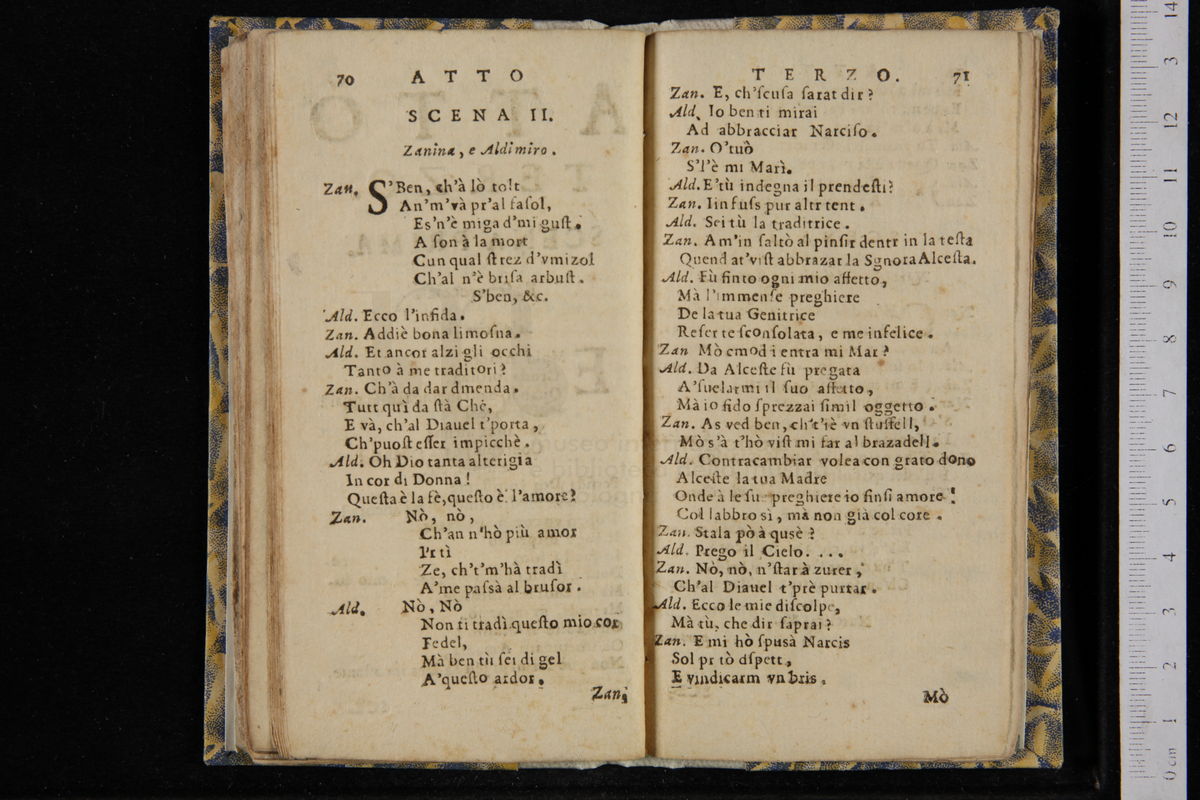 70 ATTO
SCENA II.
Zanina, e Aldimiro.
Zan. S'Ben, ch'à lò tolt
An'm'và pr'al faſol,
Es'n'è miga d'mi guſt.
A ſon à la mort
Cun qual ſtrez d'vmizol
Ch'al n'è briſa arbuſt.
S'ben, &c.
Ald. Ecco l'infida.
Zan. Addiè bona limoſna.
Ald. Et ancor alzi gli occhi
Tanto à me traditori?
Zan. Ch'à da dar dmenda.
Tutt quì da ſtà Chè,
E và, ch'al Diauel t'porta,
Ch'puoſt eſſer impicchè.
Ald. Oh Dio tanta alterigia
In cor di Donna!
Queſta è la fè, queſto è l'amore?
Zan. Nò, nò,
Ch'an n'hò più amor
Pr tì
Ze, ch't'm'hà tradì
A'me paſsà al bruſor.
Ald. Nò, Nò
Non ti tradì queſto mio cor
Fedel,
Mà ben tù ſei di gel
A'queſto ardor.
Zan.
TERZO. 71
Zan. E, ch'ſcuſa ſarat dir?
Ald. Io ben ti mirai
Ad abbracciar Narciſo.
Zan. O'tuò
S'l'è mi Marì.
Ald. E'tù indegna il prendeſti?
Zan. Iinfuſs pur altr tent.
Ald. Sei tù la traditrice.
Zan. Am'in ſaltò al pinſir dentr in la teſta
Quend at'viſt abbrazar la Sgnora Alceſta.
Ald. Fù finto ogni mio affetto,
Mà l'immenſe preghiere
De la tua Genitrice
Reſer te ſconſolata, e me infelice.
Zan Mò cmod i entra mi Mar?
Ald. Da Alceſte fù pregata
A'ſuelarmi il ſuo affetto,
Mà io fido ſprezzai ſimil oggetto.
Zan. As ved ben, ch't'iè vn ſtuffell,
Mò s'à t'hò viſt mi far al brazadell.
Ald. Contracambiar volea con grato dono
Alceſte la tua Madre
Onde à le ſue preghiere io finſi amore!
Col labbro sì, mà non già col core.
Zan. Stala pò à qusè?
Ald. Prego il Cielo. . . .
Zan. Nò, nò, n'ſtar à zurer,
Ch'al Diauel t'prè purtar.
Ald. Ecco le mie diſcolpe,
Mà tù, che dir ſaprai?
Zan. E mi hò ſpusà Narcis
Sol pr tò dſpett,
E vindicarm vn bris.
Mò